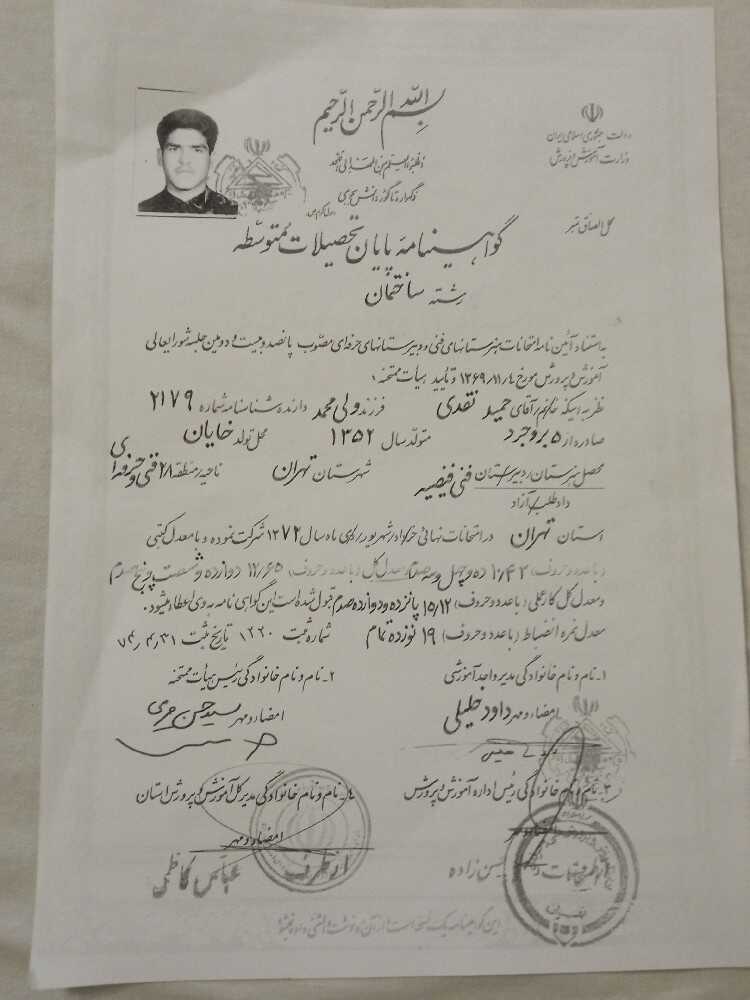 بسم الله الرحمن الرحیم
دولت جمهوری اسلامی ایران
وزارت آموزش و پرورش
ز گهواره تا گور دانش بجوی
محل الصاق تمبر
گواهینامه پایان تحصیلات متوسطه
رشته ساختمان
به استناد آئین نامه امتحانات هنرستانهای فنی و دبیرستانهای حرفه ای مصوب پانصد و بیست و دومین جلسه شورایعالی
آموزش و پرورش مورخ ۱۳۶۹/۱۱/۴ و تایید هیأت ممتحنه :
نظر به اینکه خانم/آقای حمید نقدی فرزند ولی محمد دارنده شناسنامه شماره ۲۱۷۹
صادره از ۵ بروجرد متولد سال ۱۳۵۲ محل تولد خایان
محصل هنرستان/دبیرستان فنی فیضیه شهرستان تهران ناحیه/منطقه ۲۸ فنی و حرفه ای
داوطلب آزاد
استان تهران در امتحانات نهائی خرداد/شهریور/دی ماه سال ۱۳۷۲ شرکت نموده و با معدل کتبی
(با عدد و حروف) ۱۰/۴۳ ده و چهل و سه صدم معدل کل (با عدد و حروف) ۱۲/۶۵ دوازده و شصت پنج صدم
و معدل کل کار عملی (با عدد و حروف) ۱۵/۱۲ پانزده و دوازده صدم قبول شده است این گواهی نامه به وی اعطاء میشود.
معدل نمره انضباط (با عدد و حروف) ۱۹ نوزده تمام شماره ثبت ۱۲۲۰ تاریخ ثبت ۷۴/۴/۳۱
۱ـ نام و نام خانوادگی مدیر واحد آموزشی
۲ـ نام و نام خانوادگی رئیس هیأت ممتحنه
امضاء و مهر داود خلیلی
امضاء و مهر سید حسن
۳ـ نام و نام خانوادگی رئیس اداره آموزش و پرورش
۴ـ نام و نام خانوادگی مدیر کل آموزش و پرورش استان
امضاء و مهر
از طرف عباس کاظمی